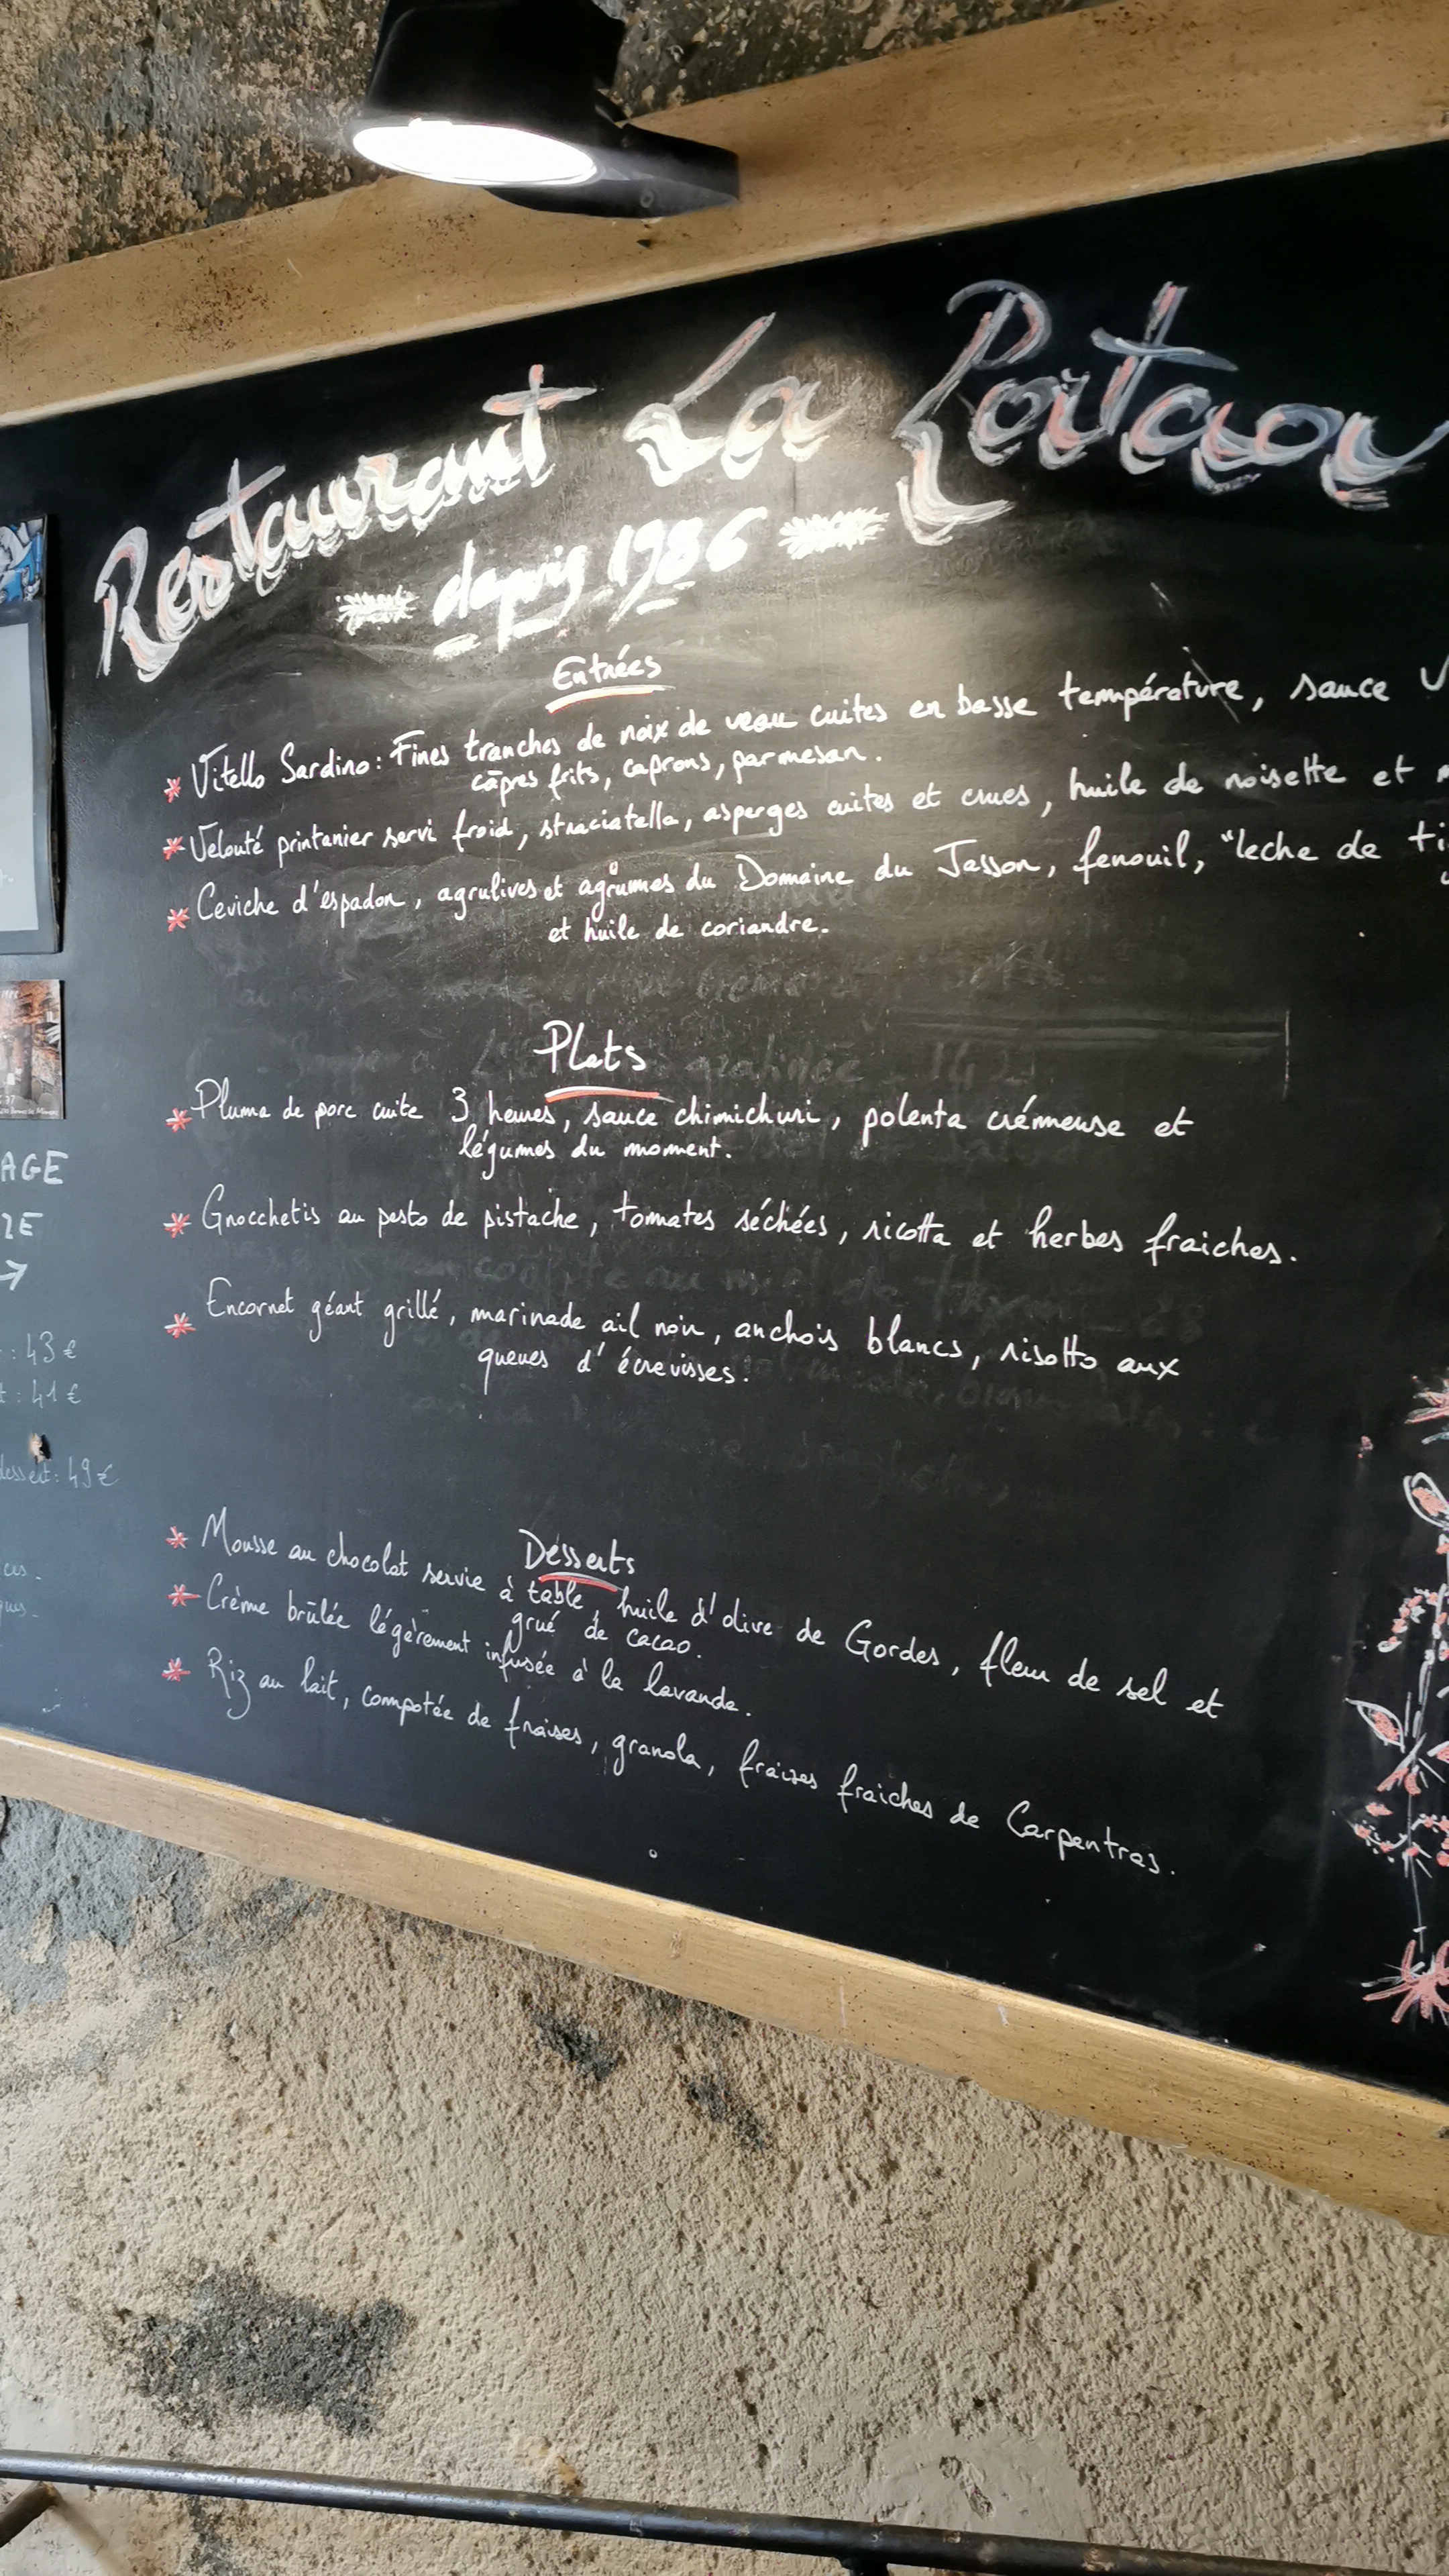 Restaurant La Portaou
depuis 1986
Entrées
* Vitello Sardino: Fines tranches de noix de veau cuites en basse température, sauce
câpres frits, caprons, parmesan.
* Velouté printanier servi froid, straciatella, asperges cuites et crues, huile de noisette et
* Ceviche d'espadon, agrulives et agrumes du Domaine du Jasson, fenouil, "leche de
et huile de coriandre.
Plats
* Pluma de porc cuite 3 heures, sauce chimichuri, polenta crémeuse et
légumes du moment.
* Gnocchetis au pesto de pistache, tomates séchées, ricotta et herbes fraiches.
* Encornet géant grillé, marinade ail noir, anchois blancs, risotto aux
queues d'écrevisses.
Desserts
* Mousse au chocolat servie à table, huile d'olive de Gordes, fleur de sel et
grué de cacao.
* Crème brûlée légèrement infusée à la lavande.
* Riz au lait, compotée de fraises, granola, fraises fraiches de Carpentras.
AGE
RE
→
: 43€
t : 41€
dessert: 49€